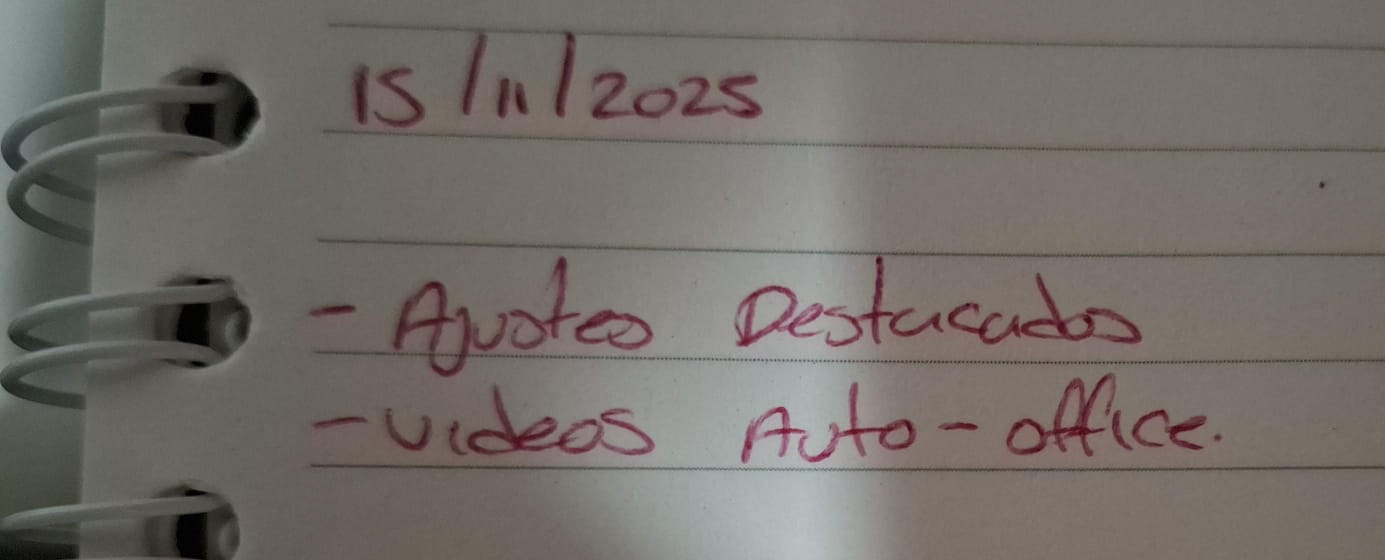 15/11/2025
- Ajustes Destacados
- Videos Auto-office.